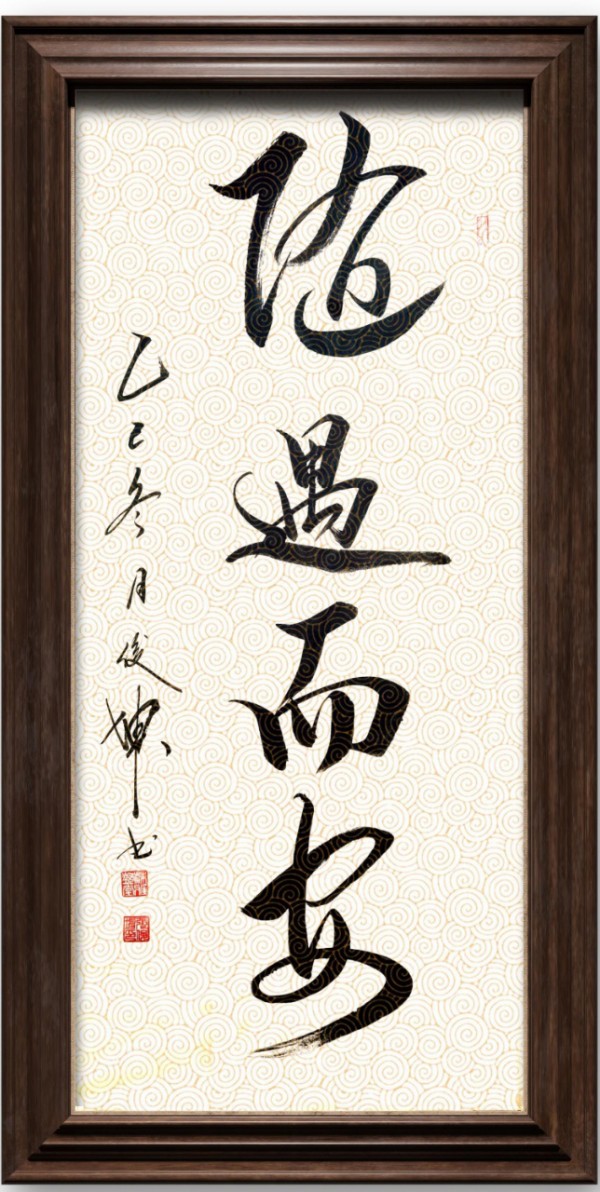 随遇而安
乙巳冬月俊坤书